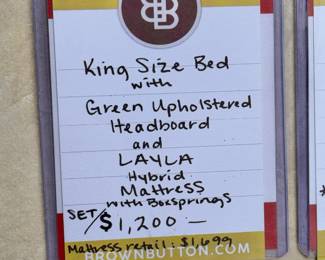 BB
King Size Bed
with
Green Upholstered
Headboard
and
LAYLA
Hybrid
Mattress
with Boxsprings
SET/$1,200 —
Mattress retail: $1,699
BROWNBUTTON.COM